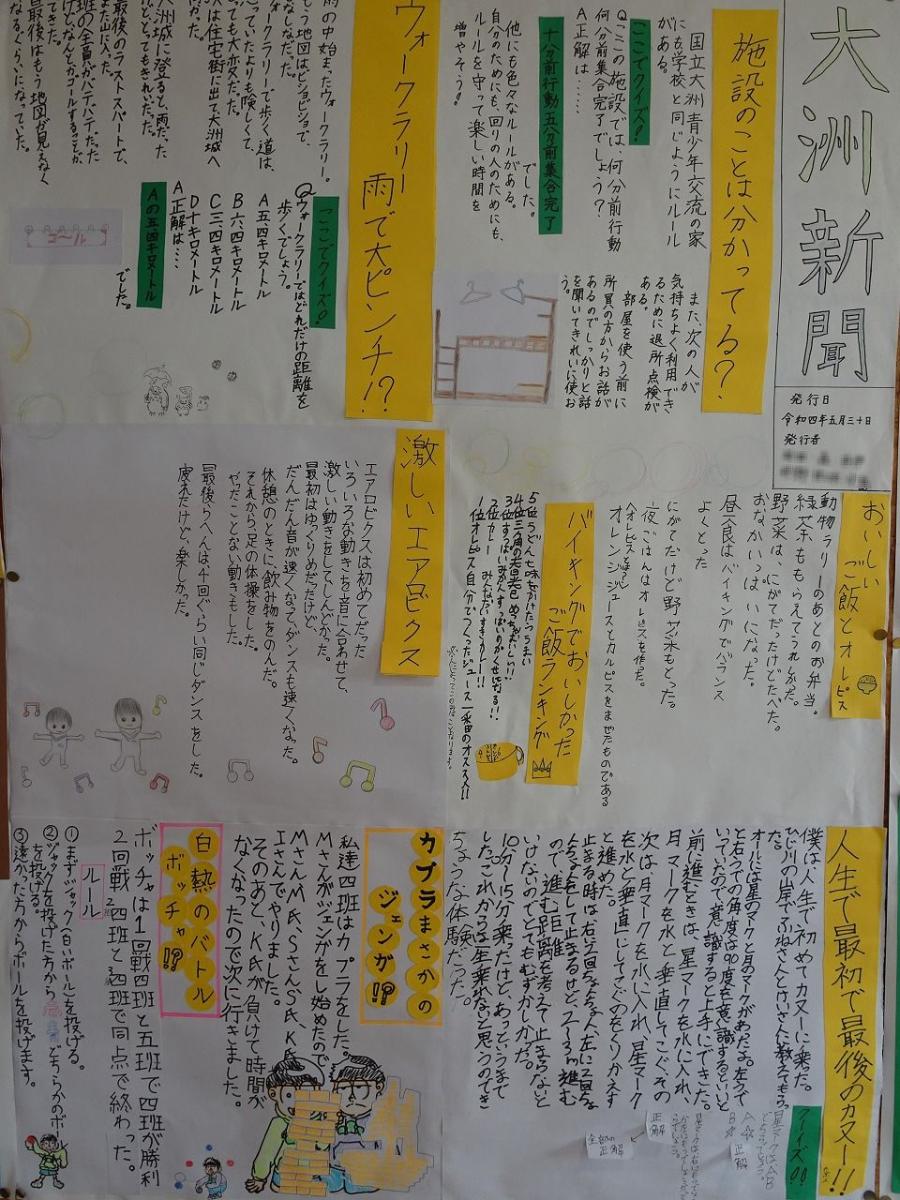 大洲新聞
発行日
令和四年五月三十日
発行者
施設のことは分かってる?
国立大洲青少年交流の家
にも学校と同じようにルール
がある。
ここでクイズ!
Qここの施設では、何分前行動
何分前集合完了でしょう?
A正解は……
十分前行動五分前集合完了
でした。
他にも色々なルールがある。
自分のためにも、回りの人のためにも、
ルールを守って楽しい時間を
増やそう!!
また、次の人が
気持ちよく利用でき
るために退所点検が
ある。
部屋を使う前に
所員の方からお話が
あるのでしっかりと話
を聞いてきれいに使お
う。
ウォークラリー雨で大ピンチ!?
雨の中始まったウォークラリー。
もう地図はビショビショで、
っていたよりも険しくて、
っても大変だった。
人は住宅街に出て大洲城へ
大洲城に登ると、雨だった
とてもきれいだった。
また山に入った。
最後のラストスパートで、
班の全員がバテバテだった
けど、なんとかゴールすることが
できた。
最後はもう地図が見えなく
なるくらいになっていた。
ここでクイズ!
Qウォークラリーではどれだけの距離を
歩くでしょう。
A五.四キロメートル
B六.四キロメートル
C三.四キロメートル
D十キロメートル
A正解は……
Aの五.四キロメートル
でした。
ゴール
おいしい
ご飯とオレピス
動物ラリーのあとのお弁当。
緑茶ももらえてうれしかった。
野菜は、にがてだったけどたべた。
おなかいっぱいになった。
昼食はバイキングでバランス
よくとった
にがてだけど野菜もとった。
夜ごはんはオレピスを作った。
オレンジジュースとカルピスをまぜたものである
バイキングでおいしかった
ご飯ランキング
5位うどん七味をかけたらうまい
2位カレー みんなだいすきカレー!!
1位オレピス自分でつくったジュース一番のオススメ!!
激しいエアロビクス
エアロビクスは初めてだった
いろいろな動きを音に合わせて、
激しい動きをしてしんどかった。
最初はゆっくりめだったけど、
だんだん音が速くなって、ダンスも速くなった。
休憩のときに、飲み物をのんだ。
それから、足の体操をした。
やったことない動きもした。
最後らへんは、4回ぐらい同じダンスをした。
疲れたけど、楽しかった。
人生で最初で最後のカヌー!!
僕は、人生で初めてカヌーに乗った。
オールには星のマークと月のマークがあったよ。左うで
と右うでの角度は90度を意識するといいと
いっていたので、意識すると上手にできた。
前に進むときは、星マークを水に入れ、
月マークを水と垂直にしてこぐ、その
次は月マークを水に入れ、星マーク
を水と垂直にしてこぐのをくりかえす
と進めた。
ので進む距離を考えて止まらないと
いけないのでとてもむずかしかった。
10分〜15分乗ったけど、あっというまで
したこれからは一生乗れないと思うのでき
ちょうな体験だった。
クイズ!!
正解
正解
カプラまさかの
ジェンガ!?
私達四班はカプラをした。
Mさんがジェンガをし始めたので
Mさん、M氏、Sさん、S氏、K氏
Iさんでやりました。
そのあと、K氏が負けて時間が
なくなったので次に行きました。
白熱のバトル
ボッチャ!?
ボッチャは1回戦四班と五班で四班が勝利
2回戦 四班と 四班で同点で終わった。
ルール
①まずジャック(白いボール)を投げる。
②ジャックを投げた方から どちらかのボール
を投げる。
③遠かった方からボールを投げます。